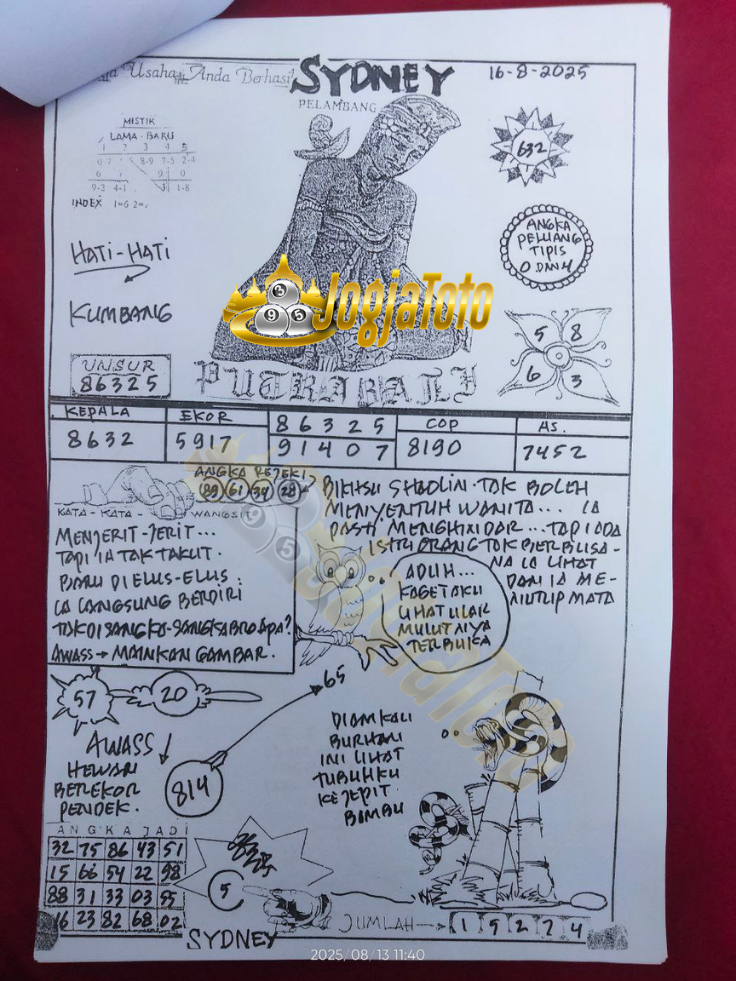 Usaha Anda Berhasil
SYDNEY
16-8-2025
PELAMBANG
MISTIK
LAMA - BARU
1 2 3 4 5
8-9 7-5 2-4
6 7 9 0
9-3 4-1 1-8
INDEX
632
ANGKA
PELUANG
TIPIS
0 DAN 4
HATI-HATI
KUMBANG
JogjaToto
5 8
6 3
UNSUR
86325
PUTRA BALI
KEPALA
8632
EKOR
5917
8 6 3 2 5
9 1 4 0 7
COP
8190
AS.
7452
ANGKA REJEKI
89 61 34 28
KATA - KATA WANGSIT
MENJERIT-JERIT...
TAPI IA TAK TAKUT.
BARU DI ELUS-ELUS.
IA LANGSUNG BERDIRI
TAK DISANGKA-SANGKA BRO APA?
AWASS → MAINKAN GAMBAR.
BIKHSU SHAOLIN TAK BOLEH
MENYENTUH WANITA... IA
PASTI MENGHINDAR... TAPI ADA
ISTRI ORANG TAK BERBUSA-
NA IA LIHAT
DAN IA ME-
NUTUP MATA
ADUH...
KAGET AKU
LIHAT ULAR
MULUTNYA
TERBUKA
57
20
65
AWASS
HEWAN
BEREKOR
PENDEK.
814
DIAM KALI
BURHAN
INI LIHAT
TUBUHKU
KEJEPIT
BAMBU
ANGKA JADI
32 75 86 43 51
15 66 54 22 98
88 31 33 03 55
16 23 82 68 02
5
SYDNEY
JUMLAH
1 5 2 7 4
2025/08/13 11:40